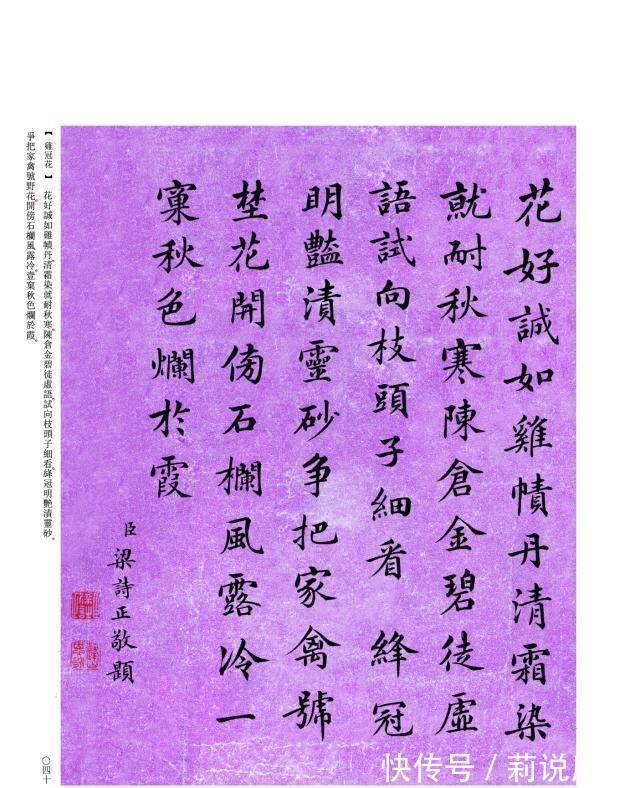 花好誠如雞幘丹清霜染
就耐秋寒陳倉金碧徒虛
語試向枝頭子細看 絳冠
明豔漬靈砂争把家禽號
埜花開傍石欄風露冷一
窠秋色爛於霞
臣梁詩正敬題
【雞冠花】 花好誠如雞幘丹。清霜染就耐秋寒。陳倉金碧徒虛語。試向枝頭子細看。絳冠明艷漬靈砂。
爭把家禽號野花。開傍石欄風露冷。壹窠秋色爛於霞。
〇四十
快传号 / 莉说